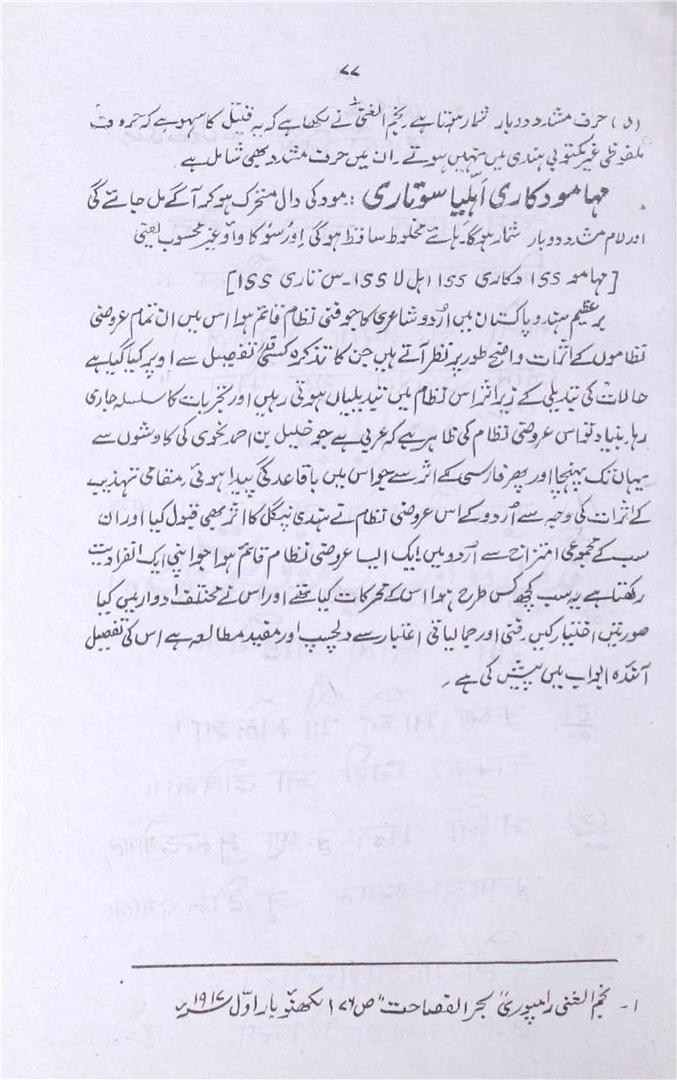 ۷۷
(۵) حرف مشدد دوبار شمار ہوتا ہے۔ نجم الغنیؒ نے لکھا ہے کہ یہ قتیل کا سہو ہے کہ حروف
ملفوظی غیر مکتوبی ہندی میں نہیں ہوتے۔ ان میں حرف مشدد بھی شامل ہے
مہا مود کاری اُہلیا سوتاری :۔ مود کی دال متحرک ہو کر آگے مل جائے گی
اور لام مشدد دوبار شمار ہوگا۔ ہائے مخلوط ساقط ہوگی اور سُو کا واؤ غیر محسوب یعنی
[مہا مو ISS دکاری ISS اہل لا ISS۔ س تاری ISS]
برِعظیم ہند و پاکستان میں اُردو شاعری کا جو فنی نظام قائم ہوا اس میں ان تمام عروضی
نظاموں کے اثرات واضح طور پر نظر آتے ہیں جن کا تذکرہ کسی قدر تفصیل سے اوپر کیا گیا ہے
حالات کی تبدیلی کے زیر اثر اس نظام میں تبدیلیاں ہوتی رہیں اور تجربات کا سلسلہ جاری
رہا۔ بنیاد تو اس عروضی نظام کی ظاہر ہے کہ عربی ہے جو خلیل بن احمد نحوی کی کاوشوں سے
یہاں تک پہنچا اور پھر فارسی کے اثر سے جو اس میں باقاعدگی پیدا ہوئی۔ مقامی تہذیب
کے اثرات کی وجہ سے اُردو کے اس عروضی نظام نے ہندی پنگل کا اثر بھی قبول کیا اور ان
سب کے مجموعی امتزاج سے اُردو میں ایک ایسا عروضی نظام قائم ہوا جو اپنی ایک انفرادیت
رکھتا ہے یہ سب کچھ کس طرح ہوا اس کے محرکات کیا تھے اور اس نے مختلف ادوار میں کیا
صورتیں اختیار کیں۔ فنی اور جمالیاتی اعتبار سے دلچسپ اور مفید مطالعہ ہے اس کی تفصیل
آئندہ ابواب میں پیش کی ہے۔
۱۔ نجم الغنی رامپوری "بحر الفصاحت" ص ۱۷۶ لکھنؤ بار اوّل ۱۹۱۷ء